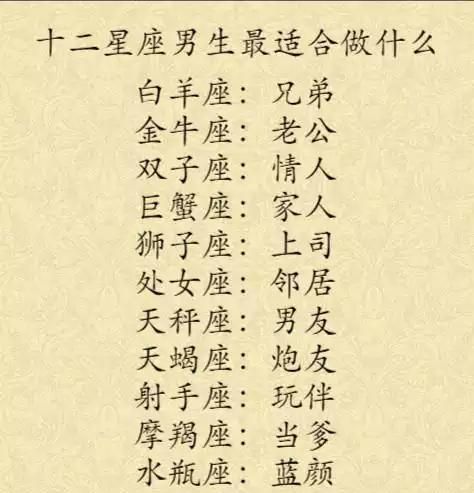 十二星座男生最适合做什么
白羊座：兄弟
金牛座：老公
双子座：情人
巨蟹座：家人
狮子座：上司
处女座：邻居
天秤座：男友
天蝎座：炮友
射手座：玩伴
摩羯座：当爹
水瓶座：蓝颜